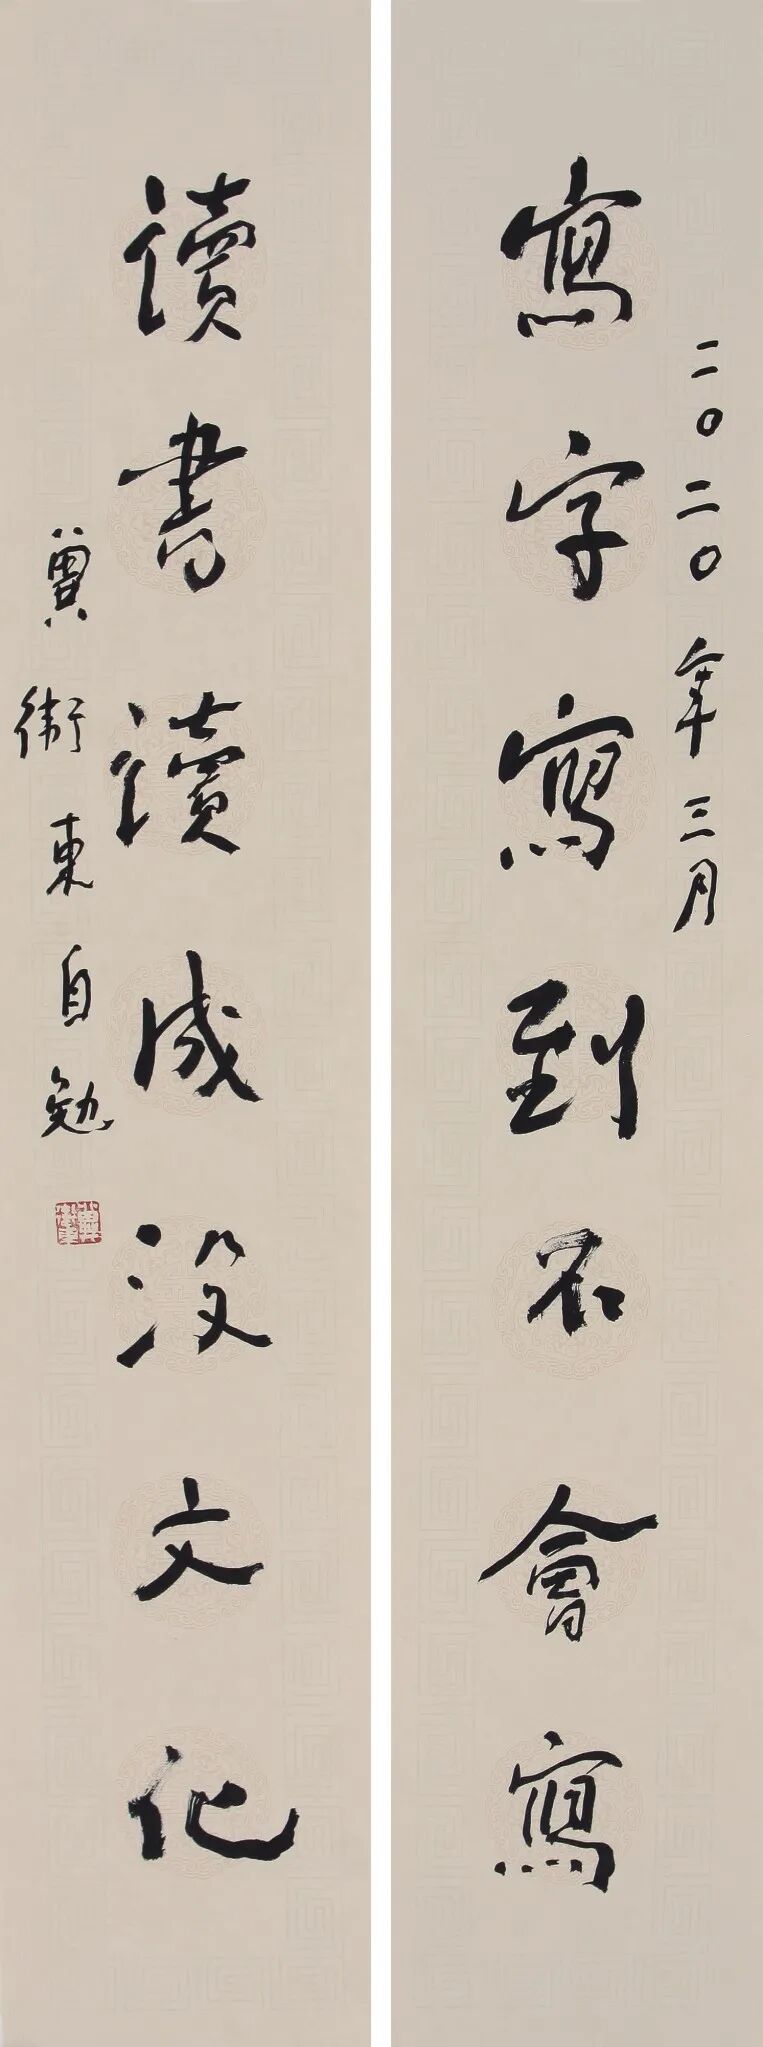 二〇二〇年三月
寫字寫到不會寫
讀書讀成没文化
冀衛東自勉